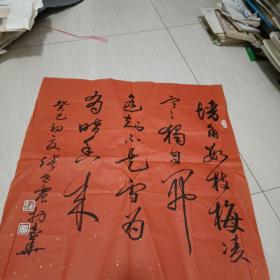 墙角数枝梅凌
寒独自开
遥知不是雪为
有暗香来
癸巳初夏